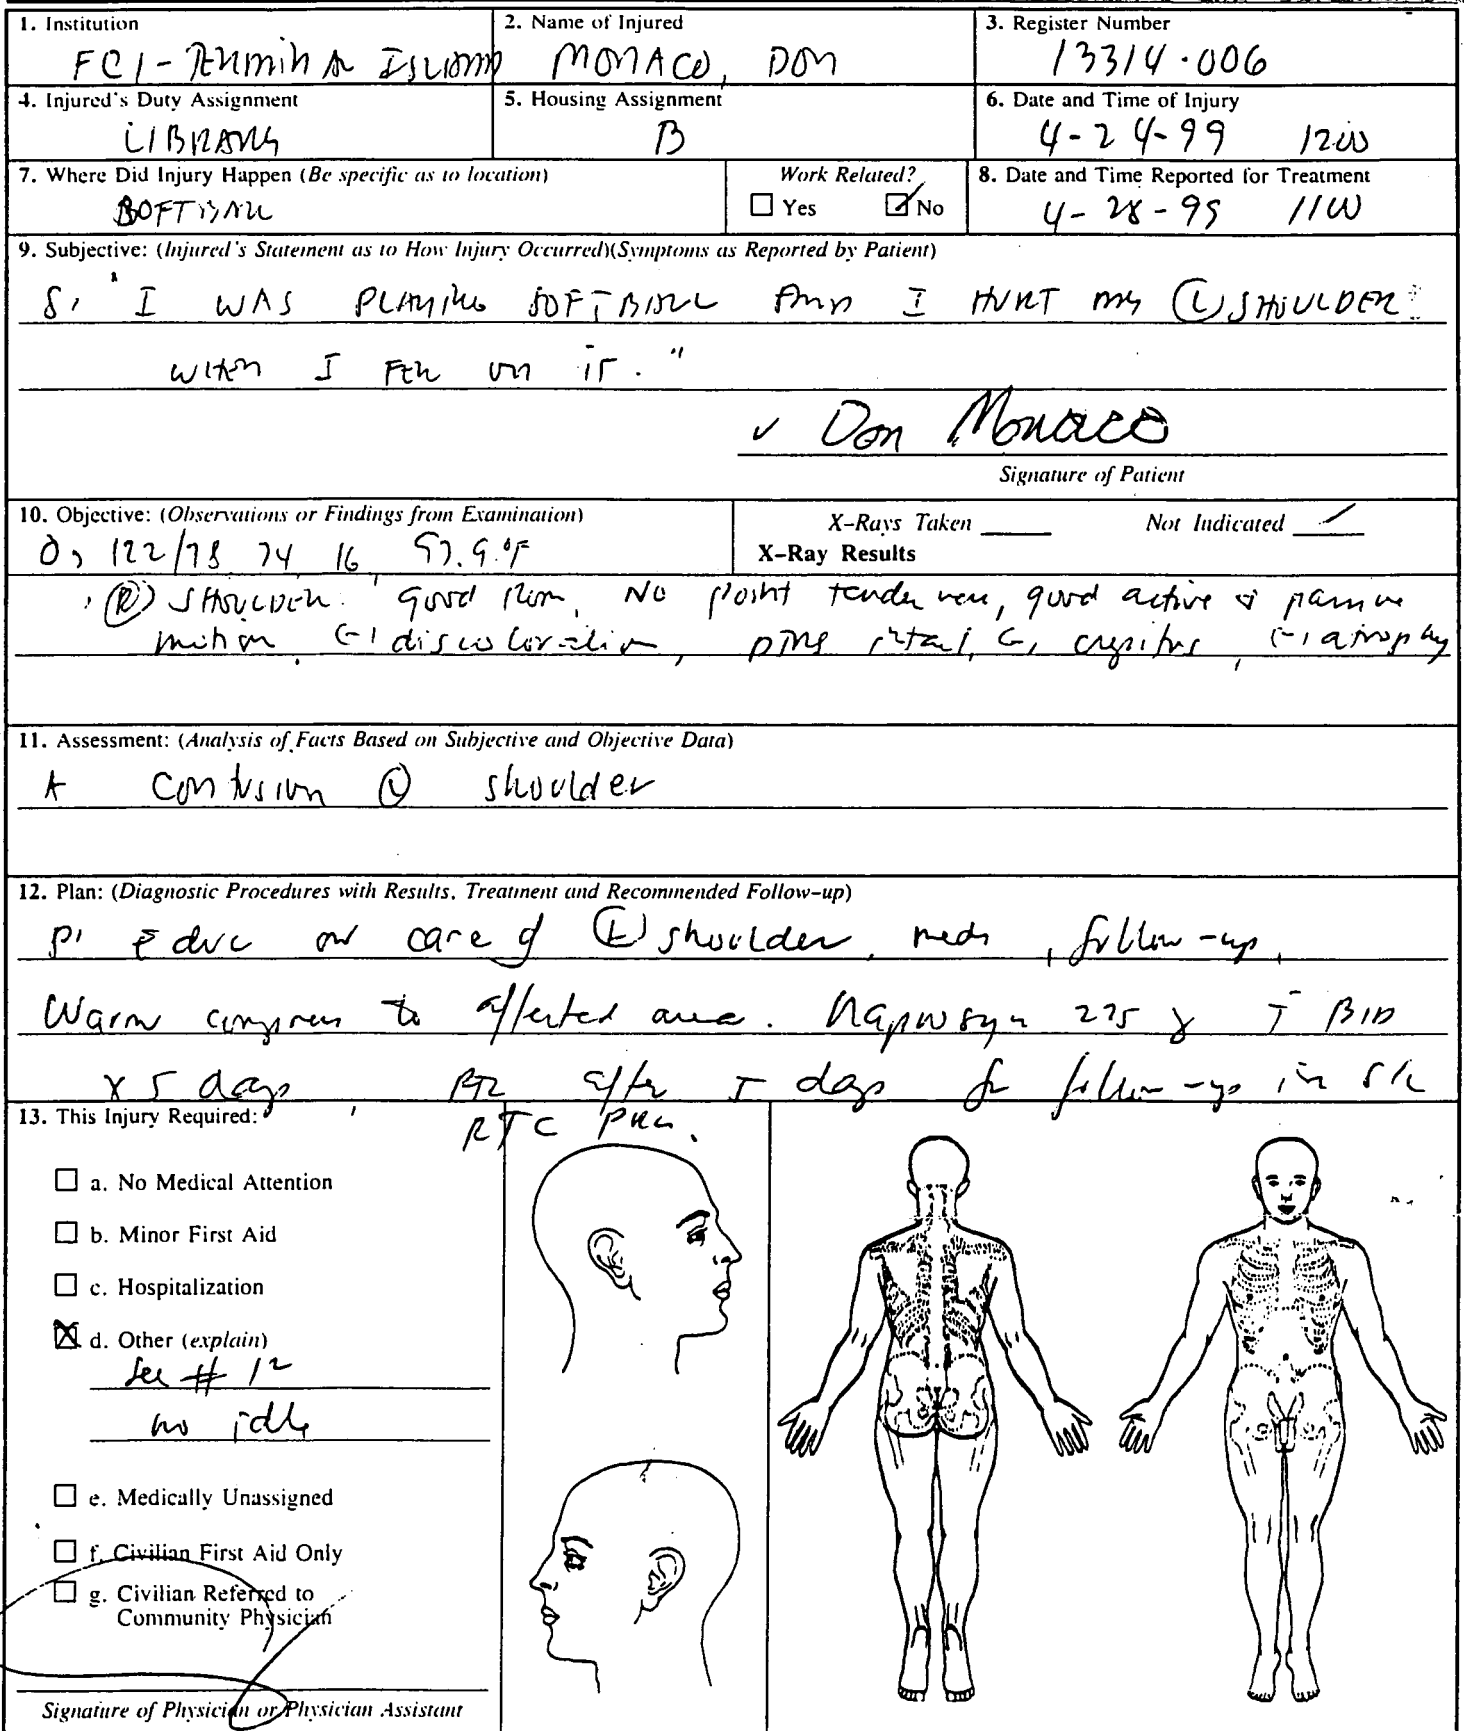 1. Institution
FCI - Terminal Island
2. Name of Injured
MONACO, DON
3. Register Number
13314-006
4. Injured's Duty Assignment
LIBRARY
5. Housing Assignment
B
6. Date and Time of Injury
4-24-99 1200
7. Where Did Injury Happen (Be specific as to location)
SOFTBALL
Work Related?
Yes No
8. Date and Time Reported for Treatment
4-28-99 1100
9. Subjective: (Injured's Statement as to How Injury Occurred)(Symptoms as Reported by Patient)
S, "I WAS PLAYING SOFTBALL AND I HURT MY (L) SHOULDER
WHEN I FELL ON IT."
Don Monaco
Signature of Patient
10. Objective: (Observations or Findings from Examination)
O, 122/78 74 16 97.9°F
X-Rays Taken Not Indicated
X-Ray Results
(R) SHOULDER: good ROM, NO point tenderness, good active & passive
motion, (-) discoloration, intact, (-) crepitus, (-) atrophy
11. Assessment: (Analysis of Facts Based on Subjective and Objective Data)
A Contusion (L) shoulder
12. Plan: (Diagnostic Procedures with Results, Treatment and Recommended Follow-up)
P, Educ on care of (L) shoulder, meds, follow-up,
Warm compress to affected area. Naprosyn 275 BID
x 5 days, after days for follow-up in S/C
RTC PRN.
13. This Injury Required:
a. No Medical Attention
b. Minor First Aid
c. Hospitalization
d. Other (explain)
See # 12
no idle
e. Medically Unassigned
f. Civilian First Aid Only
g. Civilian Referred to
Community Physician
Signature of Physician or Physician Assistant